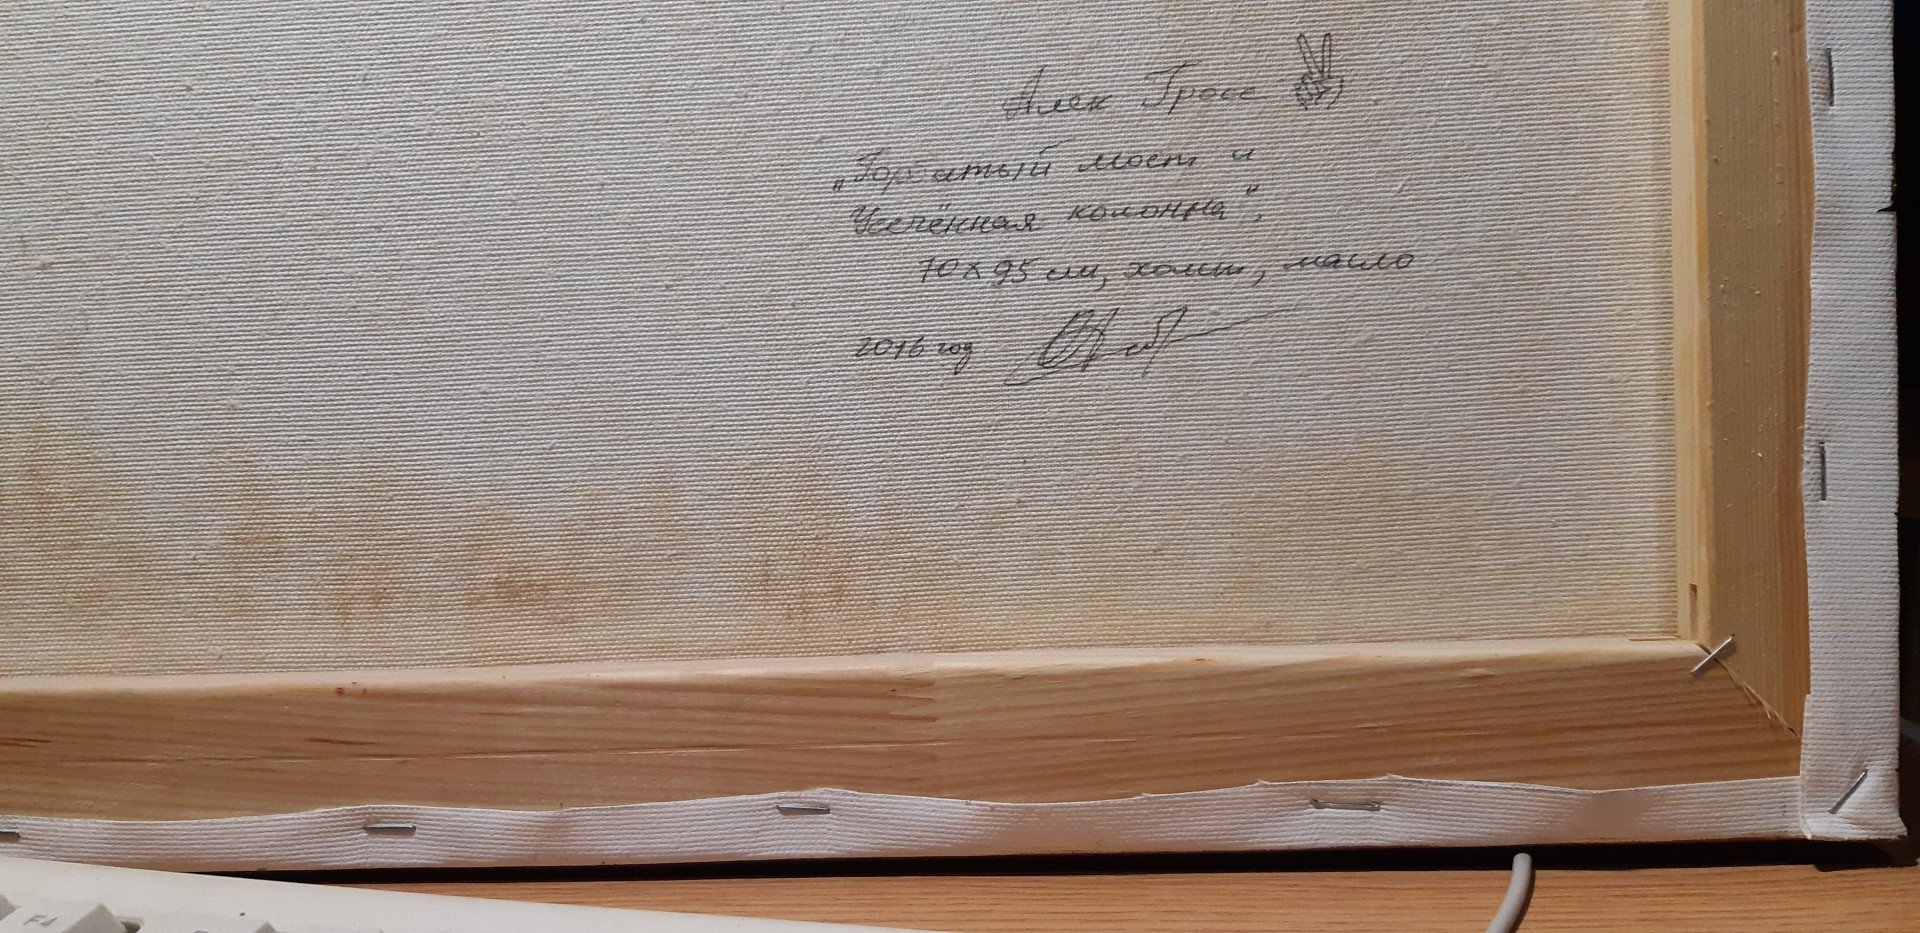 Алек Гросс
„Горбатый мост и
Усечённая колонна",
70x95 см, холст, масло
2016 год
F1